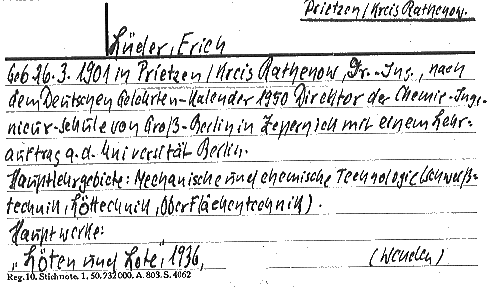 Prietzen / Kreis Rathenow.
Lüder, Erich
Geb. 26. 3. 1901 in Prietzen / Kreis Rathenow, Dr.-Ing., nach
dem Deutschen Gelehrten-Kalender 1950 Direktor der Chemie-Inge-
nieur-Schule von Groß-Berlin in Zepernick mit einem Lehr-
auftrag a. d. Universität Berlin.
Hauptlehrgebiete: Mechanische und chemische Technologie (Schweiß-
technik, Löttechnik, Oberflächentechnik).
Hauptwerke:
„Löten und Lote", 1936,
(Wenden)
Reg. 10. Stichnote. 1, 50. 232000. A. 803. S. 4062